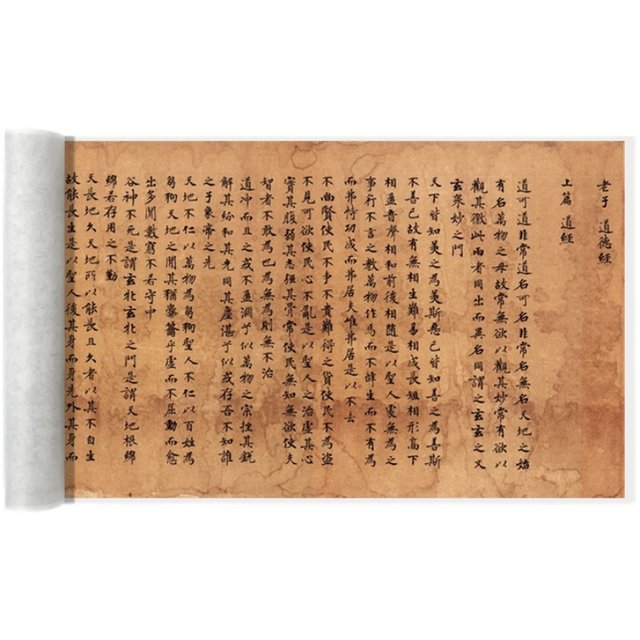 老子 道德經
上篇 道經
道可道非常道名可名非常名無名天地之始
有名萬物之母故常無欲以觀其妙常有欲以
觀其徼此兩者同出而異名同謂之玄玄之又
玄眾妙之門
天下皆知美之為美斯惡已皆知善之為善斯
不善已故有無相生難易相成長短相形高下
相盈音聲相和前後相隨是以聖人處無為之
事行不言之教萬物作焉而不辭生而不有為
而弗恃功成而弗居夫唯弗居是以不去
不尚賢使民不爭不貴難得之貨使民不為盜
不見可欲使民心不亂是以聖人之治虛其心
實其腹弱其志強其骨常使民無知無欲使夫
智者不敢為也為無為則無不治
道沖而用之或不盈淵兮似萬物之宗挫其銳
解其紛和其光同其塵湛兮似或存吾不知誰
之子象帝之先
天地不仁以萬物為芻狗聖人不仁以百姓為
芻狗天地之間其猶橐籥乎虛而不屈動而愈
出多聞數窮不若守中
谷神不死是謂玄牝玄牝之門是謂天地根綿
綿若存用之不勤
天長地久天地所以能長且久者以其不自生
故能長生是以聖人後其身而身先外其身而